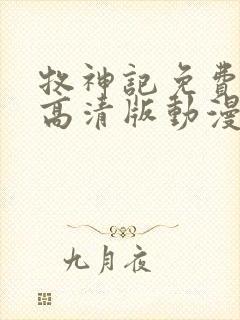 牧神記免費
高清版動漫
九月夜